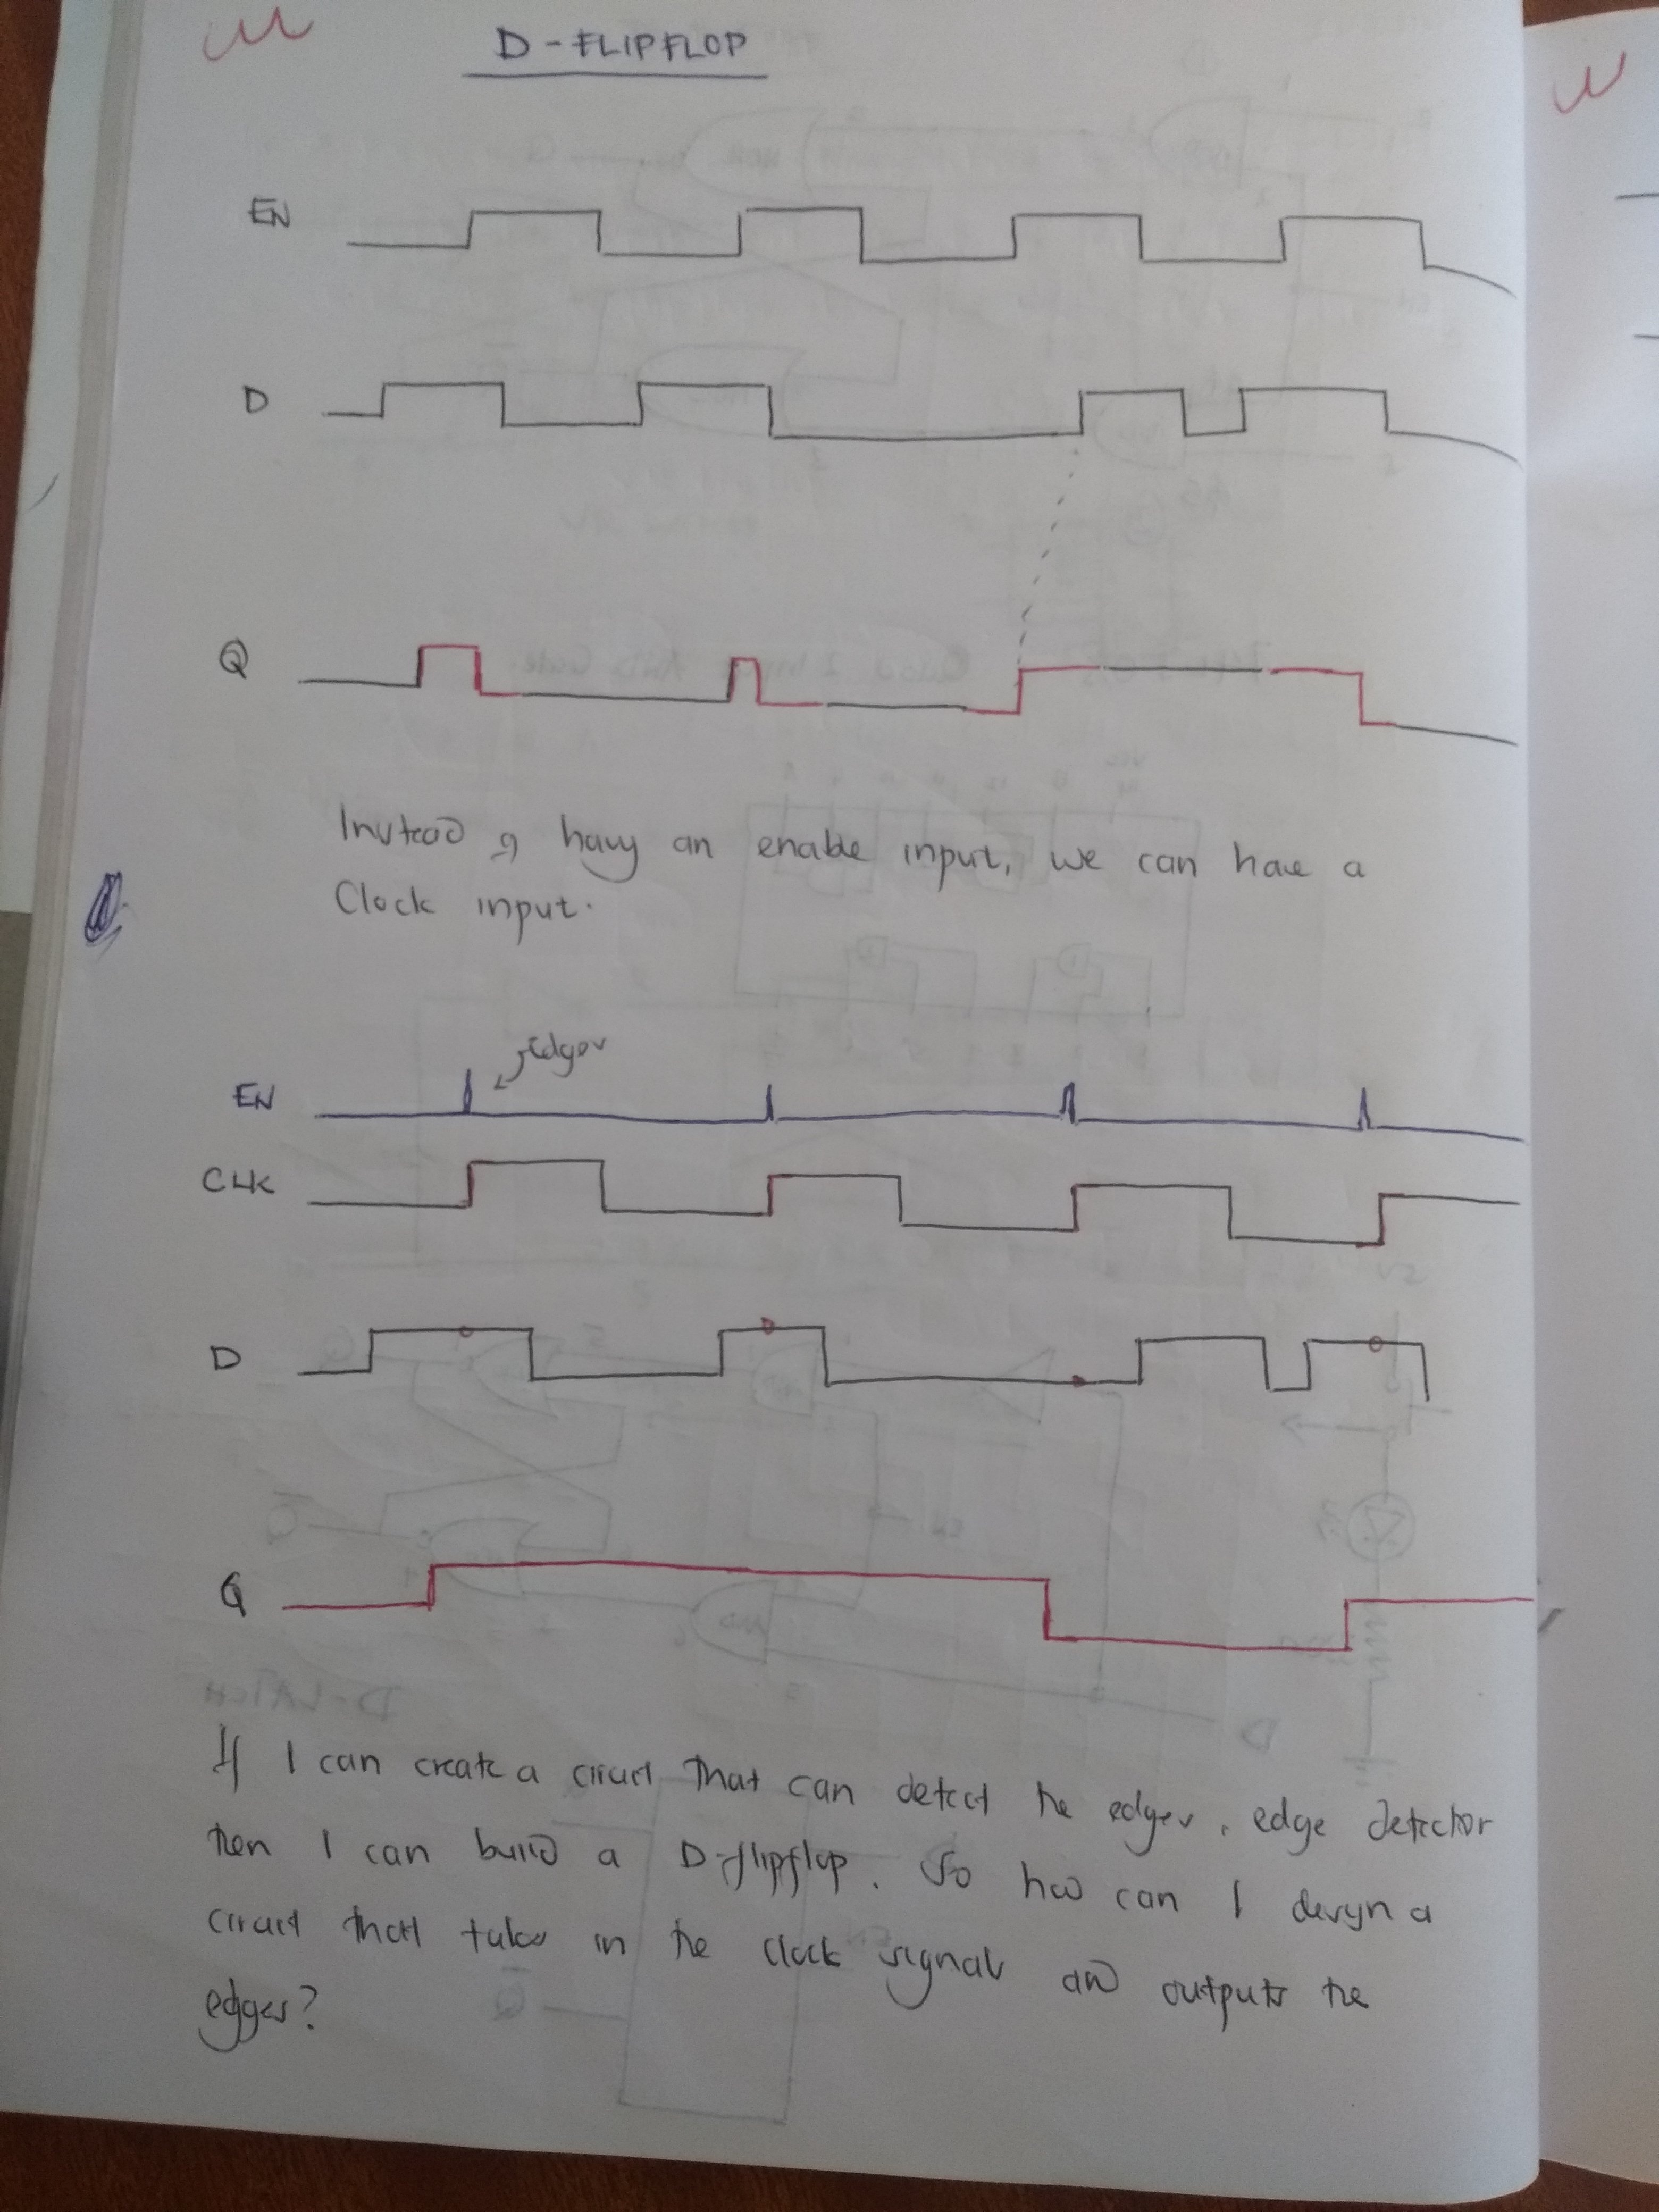 D-FLIPFLOP
EN
D
Q
Instead of having an enable input, we can have a
Clock input.
Edges
EN
CLK
D
Q
If I can create a circuit that can detect the edges, edge detector
then I can build a D-flipflop. So how can I design a
circuit that takes in the clock signal and outputs the
edges?